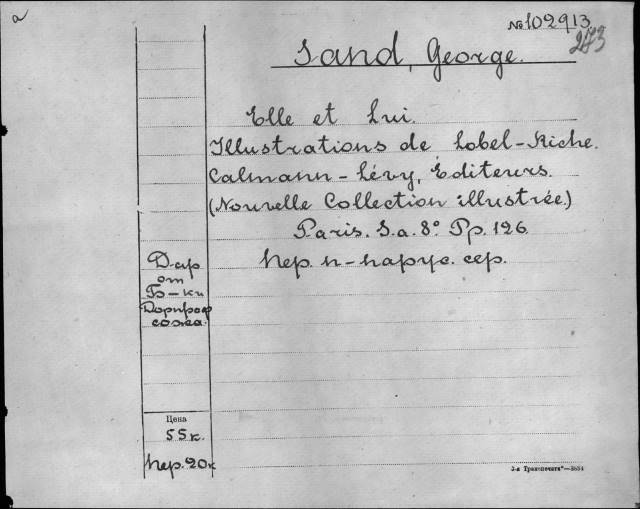 №102913
273
Sand, George.
Elle et Lui.
Illustrations de Lobel-Riche.
Calmann-Lévy, Éditeurs.
(Nouvelle Collection illustrée.)
Paris. S.a. 8° Pp. 126.
Пер. п-парус. сер.
Дар
от
Б-ки
Дорпроф
сожа.
Цена
55к.
Пер. 20к
3-я Транспечать—3654